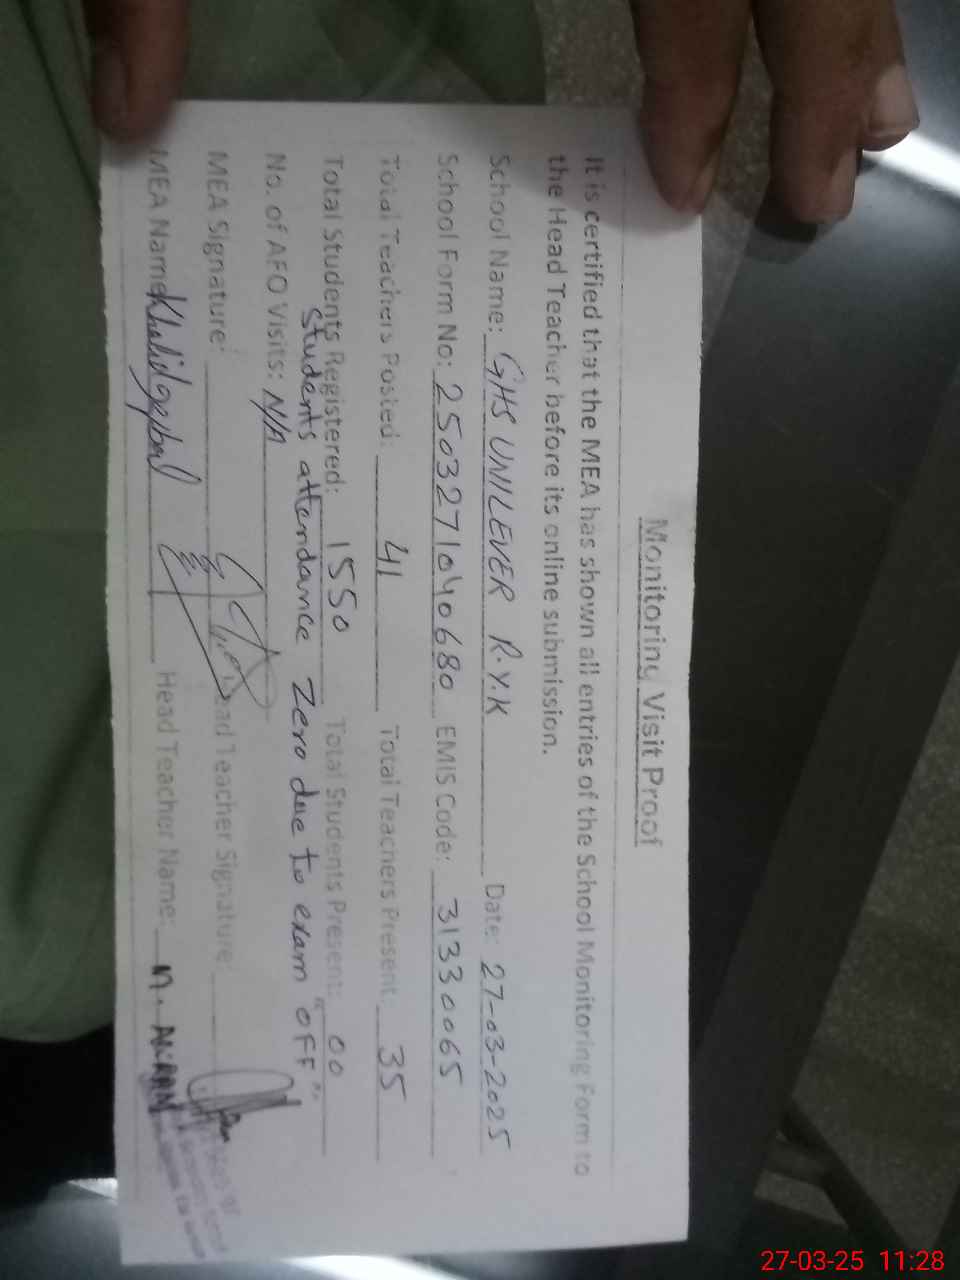 Monitoring Visit Proof
It is certified that the MEA has shown all entries of the School Monitoring Form to
the Head Teacher before its online submission.
School Name: GHS UNILEVER R.Y.K Date: 27-03-2025
School Form No: 2503271040680 EMIS Code: 31330065
Total Teachers Posted: 41 Total Teachers Present: 35
Total Students Registered: 1550 Total Students Present: 00
Students attendance Zero due to exam "OFF"
No. of AEO Visits: N/A
MEA Signature: Head Teacher Signature:
MEA Name: Khalid Head Teacher Name: M. AKRAM
27-03-25 11:28